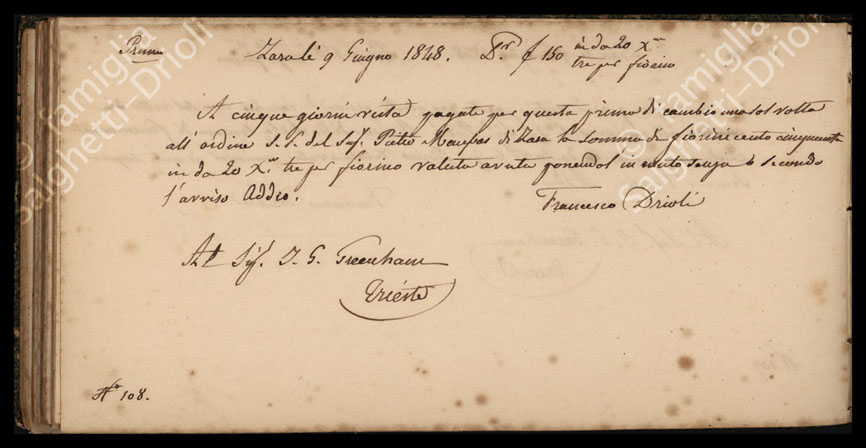 Prima Zara li 9 Giugno 1848. Pr. f 150 in da 20 Xni
tre per fiorino
A cinque giorni vista pagate per questa prima di cambio una sol volta
all'ordine S. P. del Sigr. Pietro di Zara la somma di fiorini cento cinquanta
in da 20 Xni tre per fiorino valuta avuta ponendol in conto senza o secondo
l'avviso Addio.
Francesco Drioli
Al Sigr. J. G. Greenham
Trieste
No 108.
© famiglia
Salghetti-Drioli
© famiglia
Salghetti-Drioli